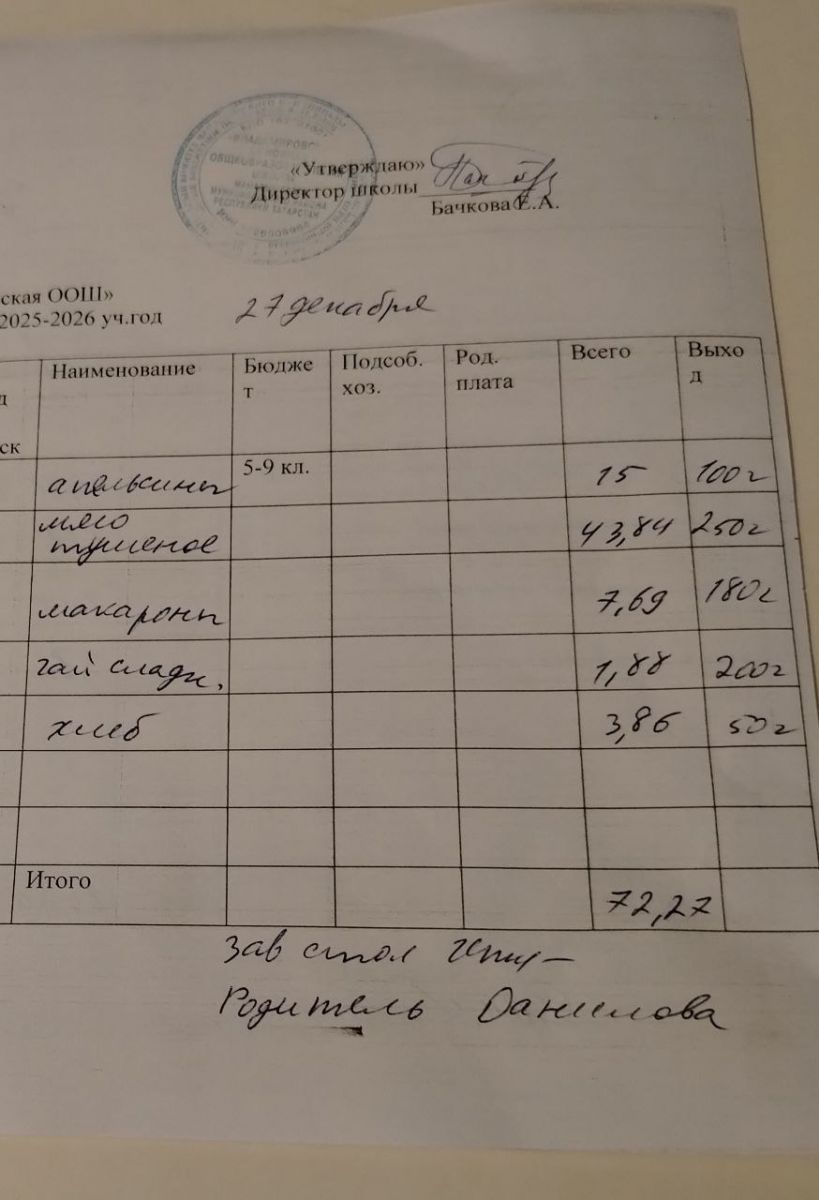 «Утверждаю»
Директор школы
Бачкова Е.А.
ская ООШ»
2025-2026 уч.год 27 декабря
д
ск
Наименование Бюдже
т Подсоб.
хоз. Род.
плата Всего Выхо
д
апельсины 5-9 кл. 15 100г
мясо
тушеное 43,84 250г
макароны 7,69 180г
чай сладк. 1,88 200г
хлеб 3,86 50г
Итого 72,27
Зав стол
Родитель Данилова